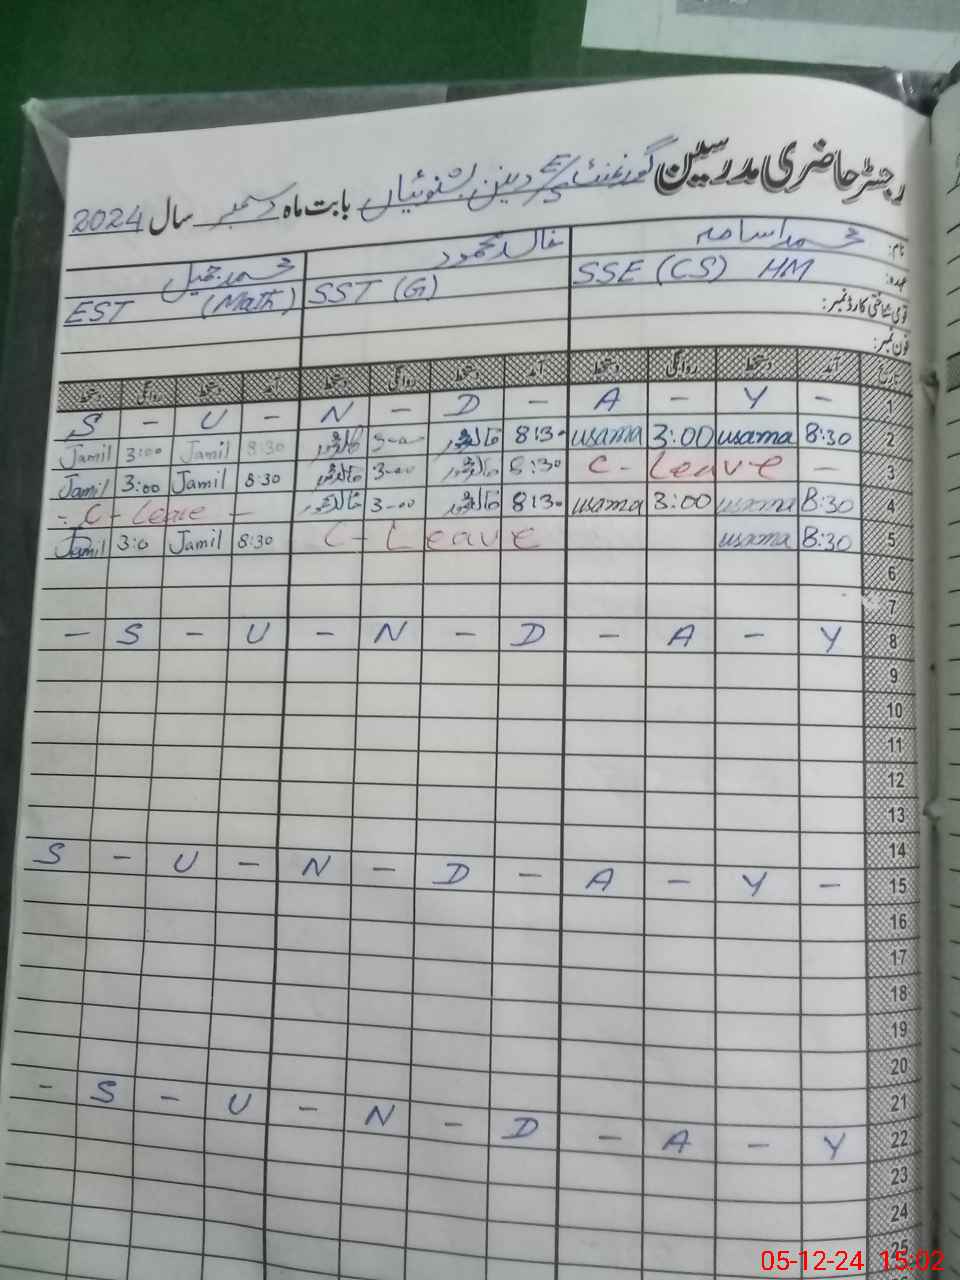 رجسٹر حاضری مدرسین گورنمنٹ E/S دینن بشنوئیاں بابت ماہ دسمبر سال 2024
نام: محمد اسامہ خالد محمود محمد جمیل
عہدہ: SSE (CS) HM SST (G) EST (Math)
قومی شناختی کارڈ نمبر:
فون نمبر:
تاریخ آمد دستخط روانگی دستخط آمد دستخط روانگی دستخط آمد دستخط روانگی دستخط
S - U - N - D - A - Y - 1
Jamil 3:00 Jamil 8:30 خالد محمود 3-00 خالد محمود 8:30 usama 3:00 usama 8:30 2
Jamil 3:00 Jamil 8:30 خالد محمود 3-00 خالد محمود 8:30 C- Leave - 3
- C- Leave - خالد محمود 3-00 خالد محمود 8:30 usama 3:00 usama 8:30 4
Jamil 3:0 Jamil 8:30 C- Leave usama 8:30 5
6
7
- S - U - N - D - A - Y 8
9
10
11
12
13
14
S - U - N - D - A - Y - 15
16
17
18
19
20
21
- S - U - N - D - A - Y 22
23
24
25
05-12-24 15:02